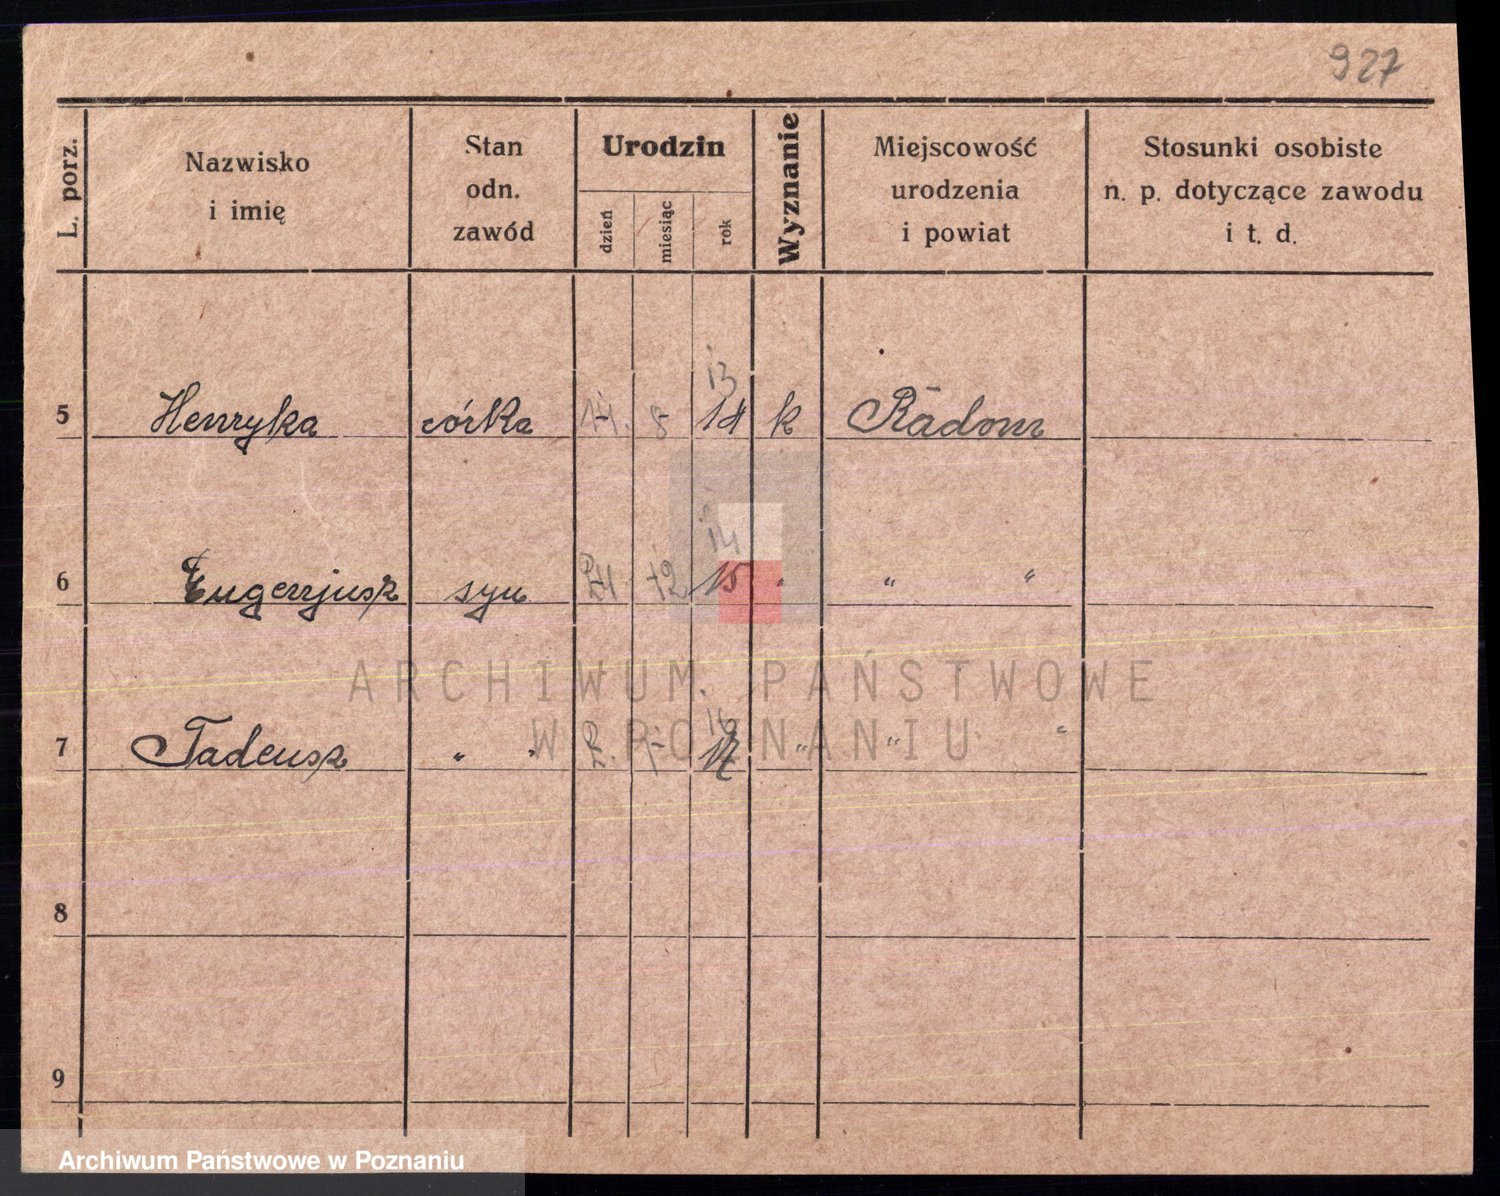 927
L. porz.
Nazwisko
i imię
Stan
odn.
zawód
Urodzin
dzień
miesiąc
rok
Wyznanie
Miejscowość
urodzenia
i powiat
Stosunki osobiste
n. p. dotyczące zawodu
i t. d.
13
5 Henryka córka 14. 8 14 k Radom
14
6 Eugenjusz syn 24 12 15 " " "
16
7 Tadeusz " " 2. " " "
8
9
ARCHIWUM PAŃSTWOWE
W POZNANIU
Archiwum Państwowe w Poznaniu